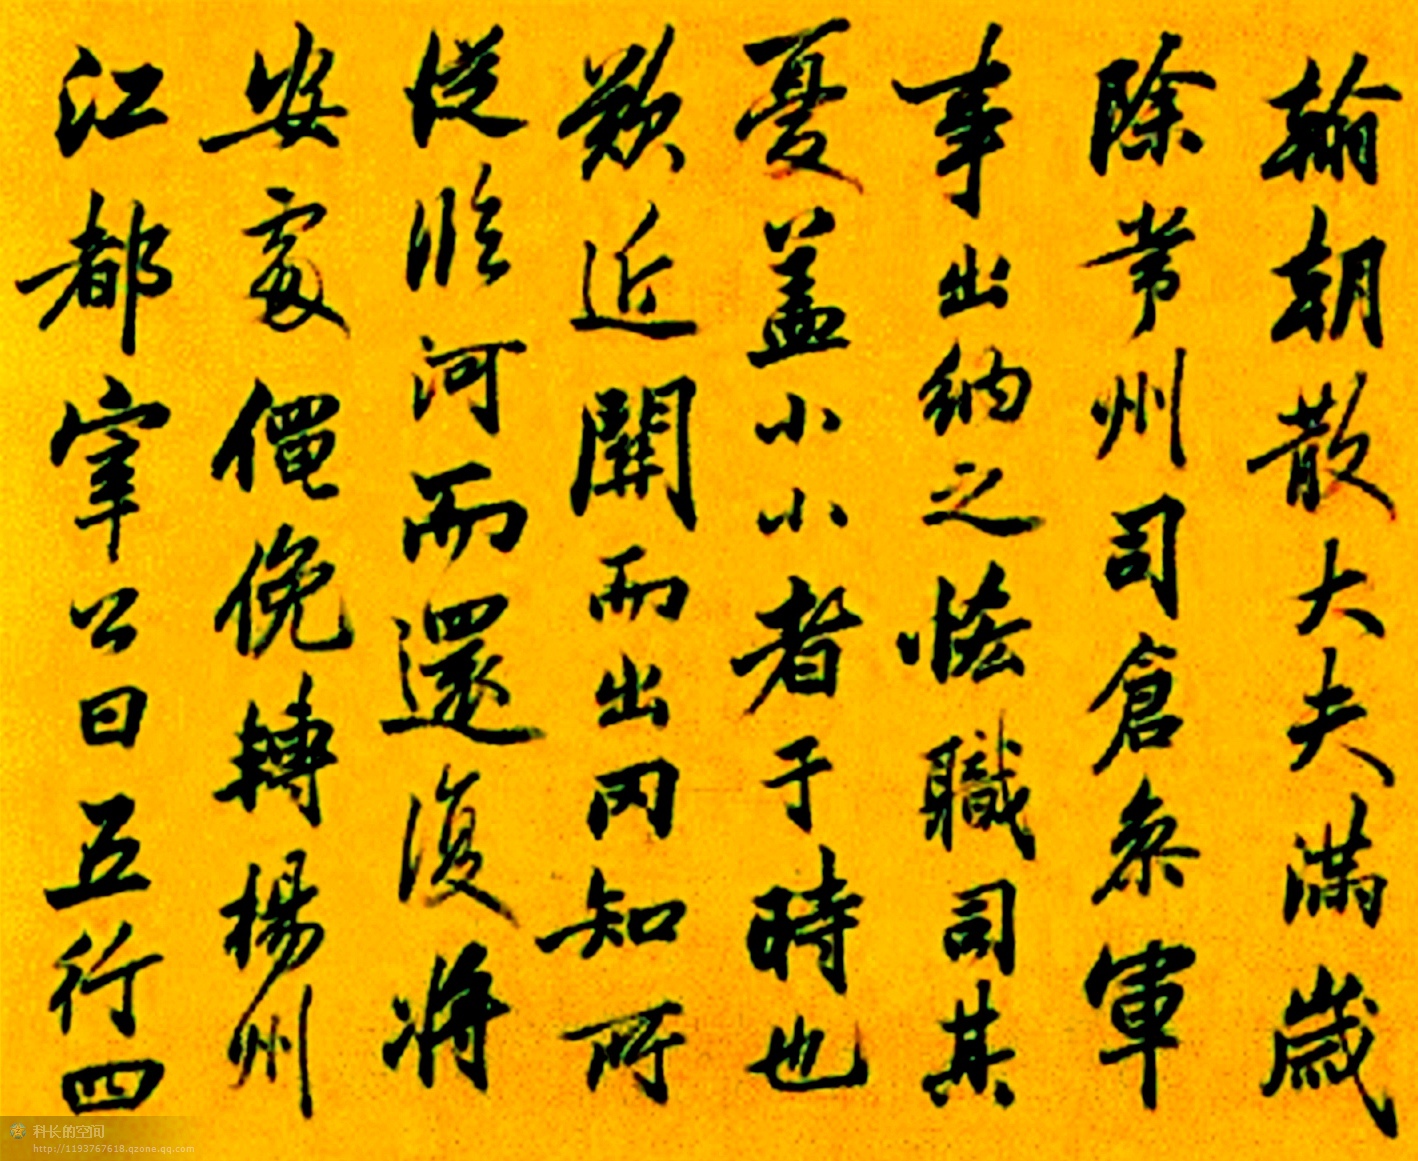 翰朝散大夫满歲
除常州司倉叅軍
事出納之恡職司其
憂盖小小者于時也
歎近關而出冈知所
從臨河而還復将
安處僶俛轉楊州
江都宰公曰五行四
科长的空间
http://1193767618.qzone.qq.com